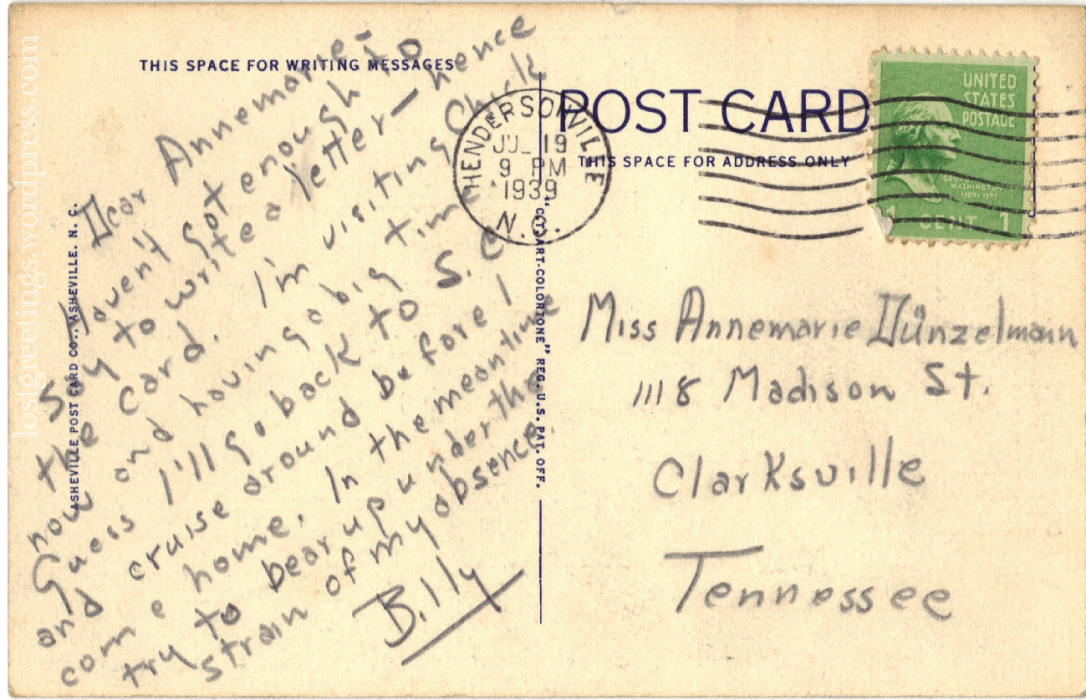 THIS SPACE FOR WRITING MESSAGES
Dear Annemarie-
Haven't got enough to
say to write a letter — hence
the card. I'm visiting Chick
now and having a big time
Guess I'll go back to S. C.
and cruise around before I
come home. In the meantime
try to bear up under the
strain of my absence.
Billy
ASHEVILLE POST CARD CO., ASHEVILLE, N. C.
"C.T. ART-COLORTONE" REG. U.S. PAT. OFF.
POST CARD
THIS SPACE FOR ADDRESS ONLY
HENDERSONVILLE
JUL 19
9 PM
1939
N.C.
UNITED
STATES
POSTAGE
GEORGE
WASHINGTON
1789-1797
1 CENT 1
Miss Annemarie Dünzelmann
1118 Madison St.
Clarksville
Tennessee
lostgreetings.wordpress.com